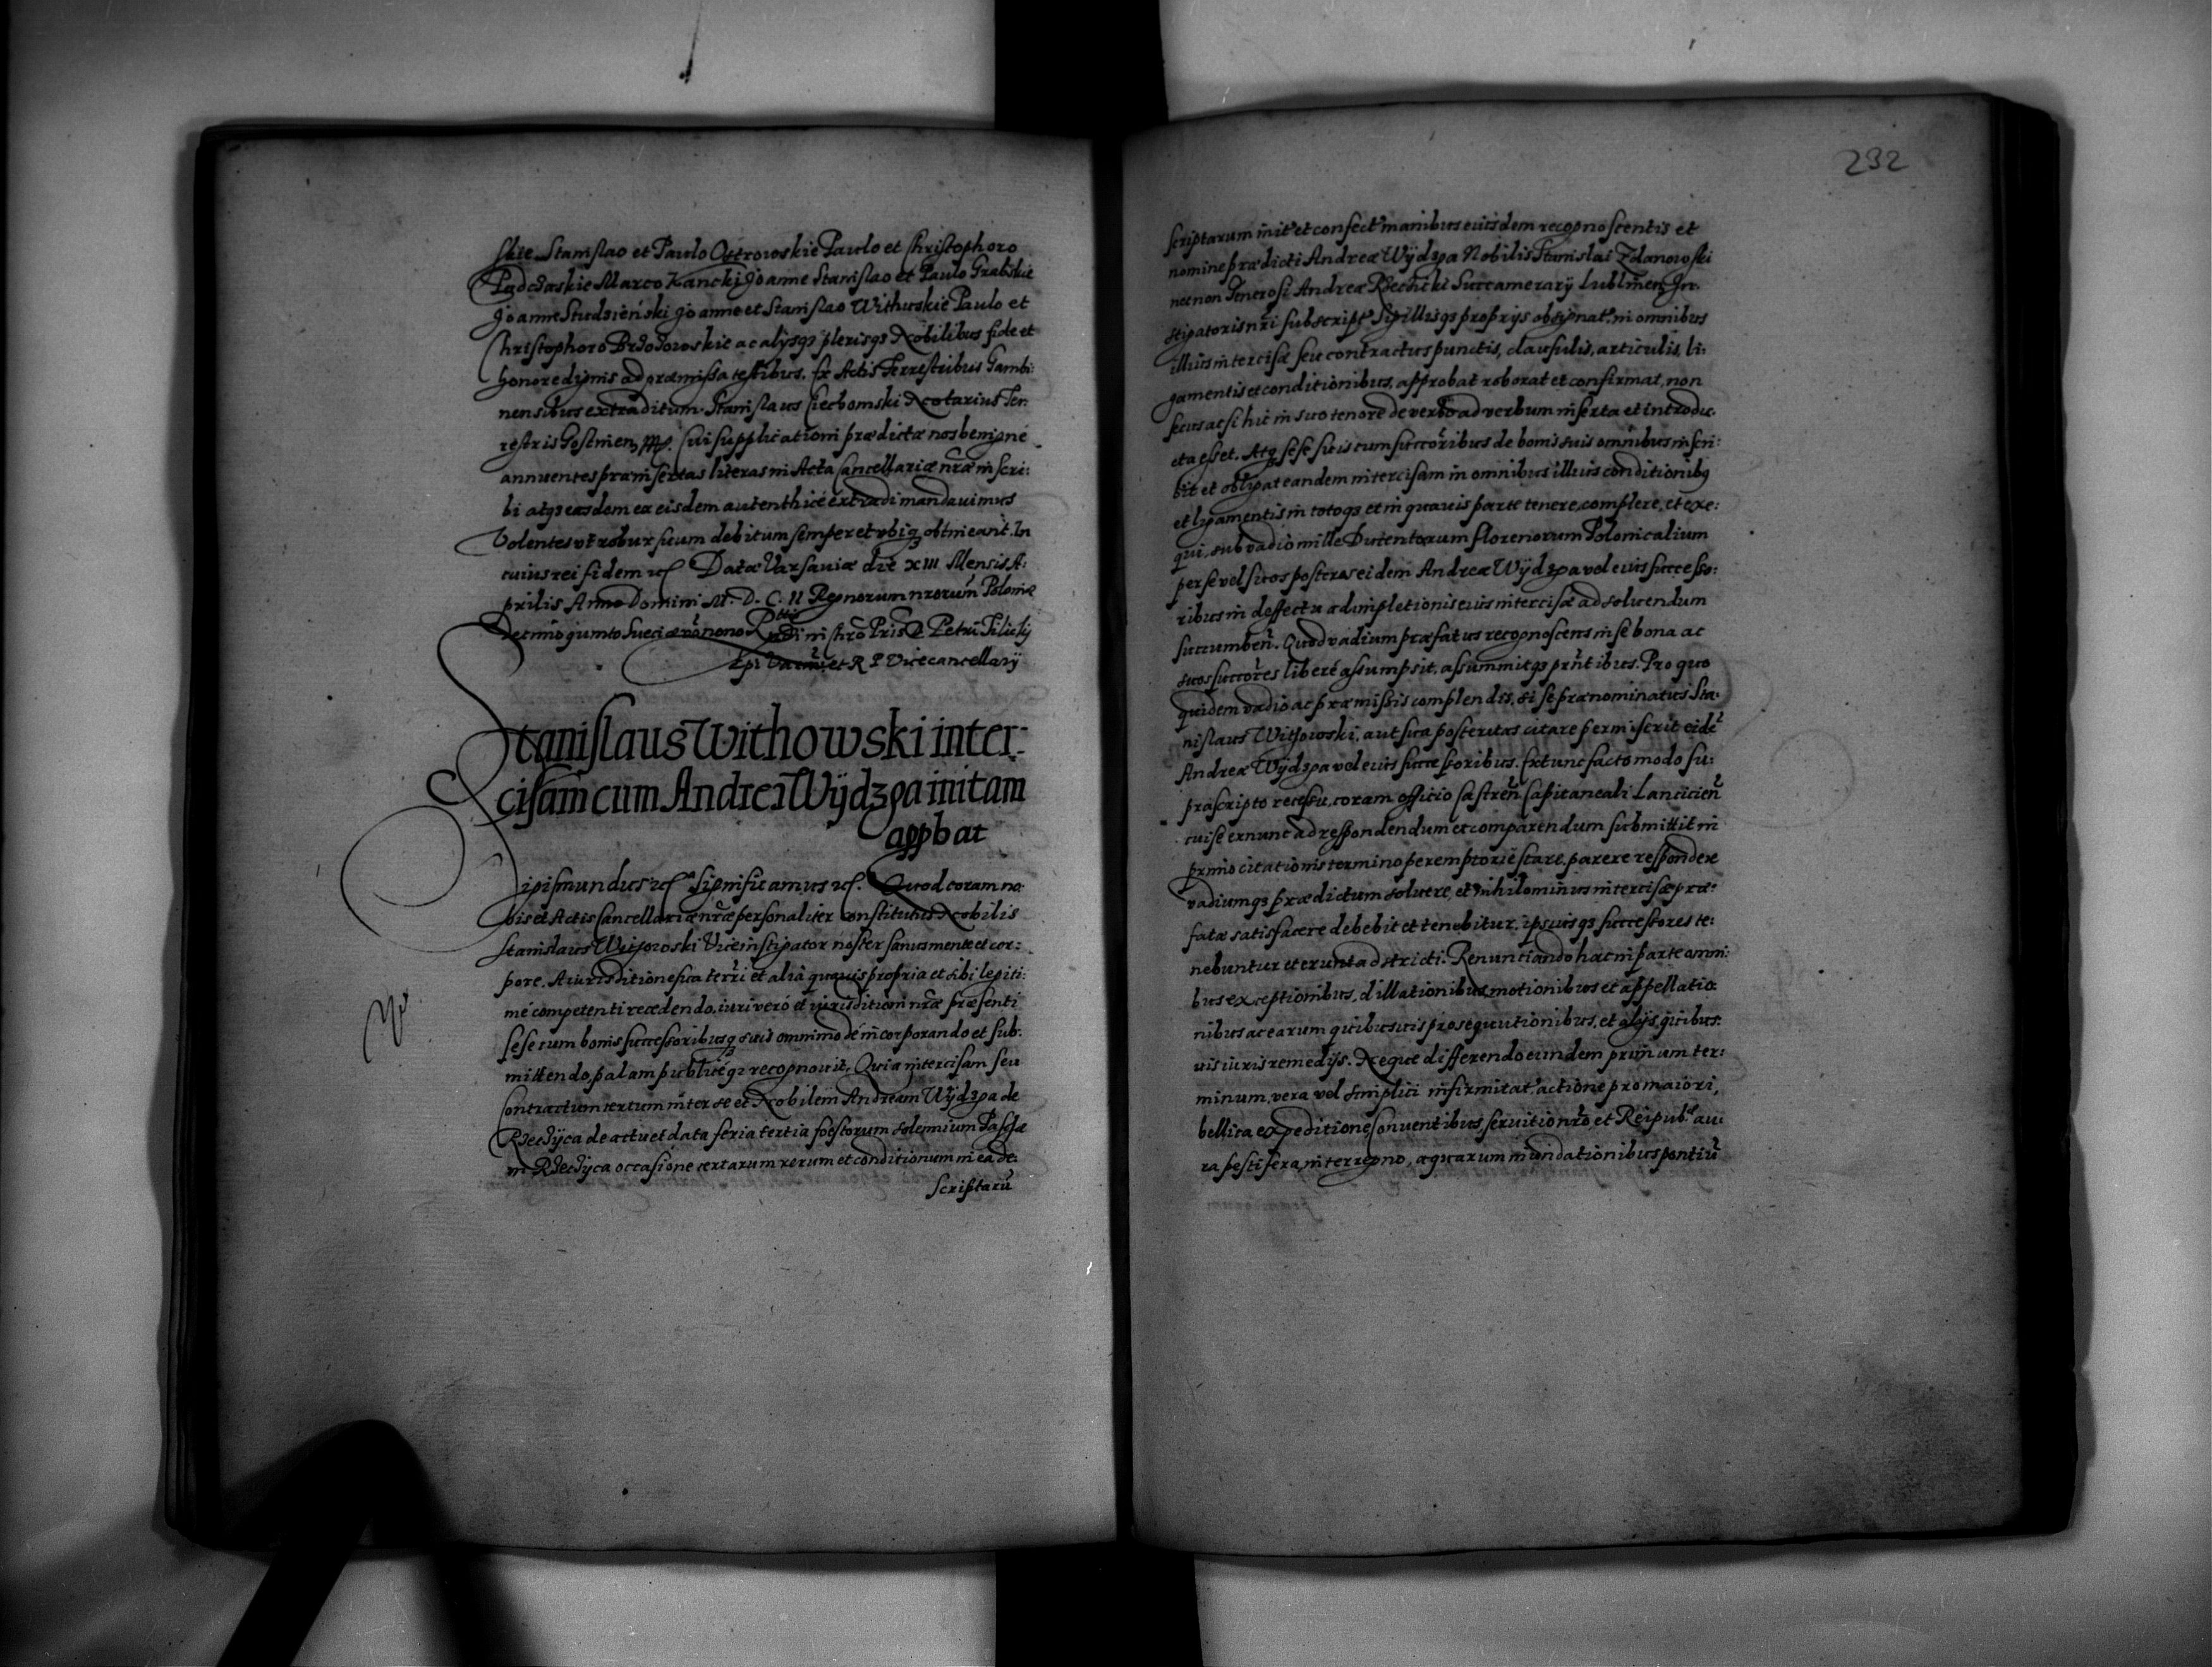 skie Stanislao et Paulo Ostrowskie Paulo et Christophoro
Marco Kancki Joanne Stanislao et Paulo Grabskie
Joanne Studzieński Joanne et Stanislao Withuskie Paulo et
Christophoro ac alijsqз plerisqз Nobilibus fide et
honore dignis ad præmissa testibus. Ex Actis Terrestribus Gambi:
nensibus extraditum Stanislaus Ciechomski Notarius Ter:
restris Gostinen mpp. Cui supplicationi prædictæ nos benigné
annuentes præinsertas literas in Acta Cancellariæ nrãe inscri:
bi atqз easdem ex eisdem autenthicé extradi mandauimus
Volentes vt robur suum debitum semper et vbiqз obtineant. In
cuius rei fidem etc Datæ Varsauiæ die XIII Mensis A:
prilis Anno Domini M. D. C. II Regnorum nrorum Poloniæ
Decimo quinto Sueciæ võ nono Rndi in Chrõ Pris D Petri Tilicky
Epi et R P Vicecancellarij
Stanislaus Withowski inter:
cisam cum Andrea Wÿdzga initam
appbat
Sigismundus etc Significamus etc. Quod coram no:
bis et Actis Cancellariæ nrãe personaliter constitutus Nobilis
Stanislaus Witkowski Viceinstigator noster sanus mente et cor:
pore. A iurisditione sua terri et alia quauis propria et sibi legiti:
mé competenti recedendo, iuri veró et iurisditioni nrãe præsenti
sese cum bonis successoribusqз suis omnimodé incorporando et sub:
mittendo, palam publicéqз recognouit, Quia intercisam seu
Contractum certum inter se et Nobilem Andream Wÿdzga de
de actu et data feria tertia foestorum solemnium Paschæ
in occasione certarum rerum et conditionum in ea de:
scriptarũ
232
scriptarum init et confect manibus eiusdem recognoscentis et
nomine prædicti Andreæ Wÿdzga Nobilis Stanislai Zdanowski
necnon Generosi Andreæ Rzechicki Succamerarij Lublinen, In:
stigatoris nri subscript Sigillisqз proprijs obsignat, in omnibus
illius intercisæ seu contractus punctis, clausulis, articulis, li:
gamentis et conditionibus, approbat roborat et confirmat, non
secus ac si hic in suo tenore de verbo ad verbum inserta et introdu:
cta esset. Atqз sese suis cum succoribus de bonis suis omnibus inscri:
bit et obligat eandem intercisam in omnibus illius conditionibз
et ligamentis in totoqз et in quauis parte tenere, complere, et exe:
qui, sub vadio mille Ducentorum florenorum Polonicalium
per se vel suos posteros eidem Andreæ Wÿdzga vel eius successo:
ribus in deffectu adimpletionis eius intercisæ ad soluendum
succumben. Quod vadium præfatus recognoscens in se bona ac
suos succores liberé assumpsit, assummitqз prñtibus. Pro quo
quidem vadio ac præmissis complendis, si se prænominatus Sta:
nislaus Witkowski, aut sua posteritas citare permiserit eidẽ
Andreæ Wÿdzga vel eius successoribus. Extunc facto modo su:
prascripto recessu, coram officio Castren Capitaneali Lancicien
cui se exnunc ad respondendum et comparendum submittit in
primo citationis termino peremptorié stare, parere respondere
vadiumqз prædictum soluere, et nihilominus intercisæ præ:
fatæ satisfacere debebit et tenebitur, ipsiusqз successores te:
nebuntur et erunt adstricti. Renunciando hac in parte omni:
bus exceptionibus, dillationibus, motionibus et appellatio:
nibus ac earum quibusuis prosequutionibus, et alijs quibus:
uis iuris remedijs. Neque differendo eundem primum ter:
minum, vera vel simplici infirmitat, actione pro maiori,
bellica expeditione Conuentibus, seruitio nrõ et Reipub. au:
ra pestifera, interregno, aquarum inundationibus pontiũ